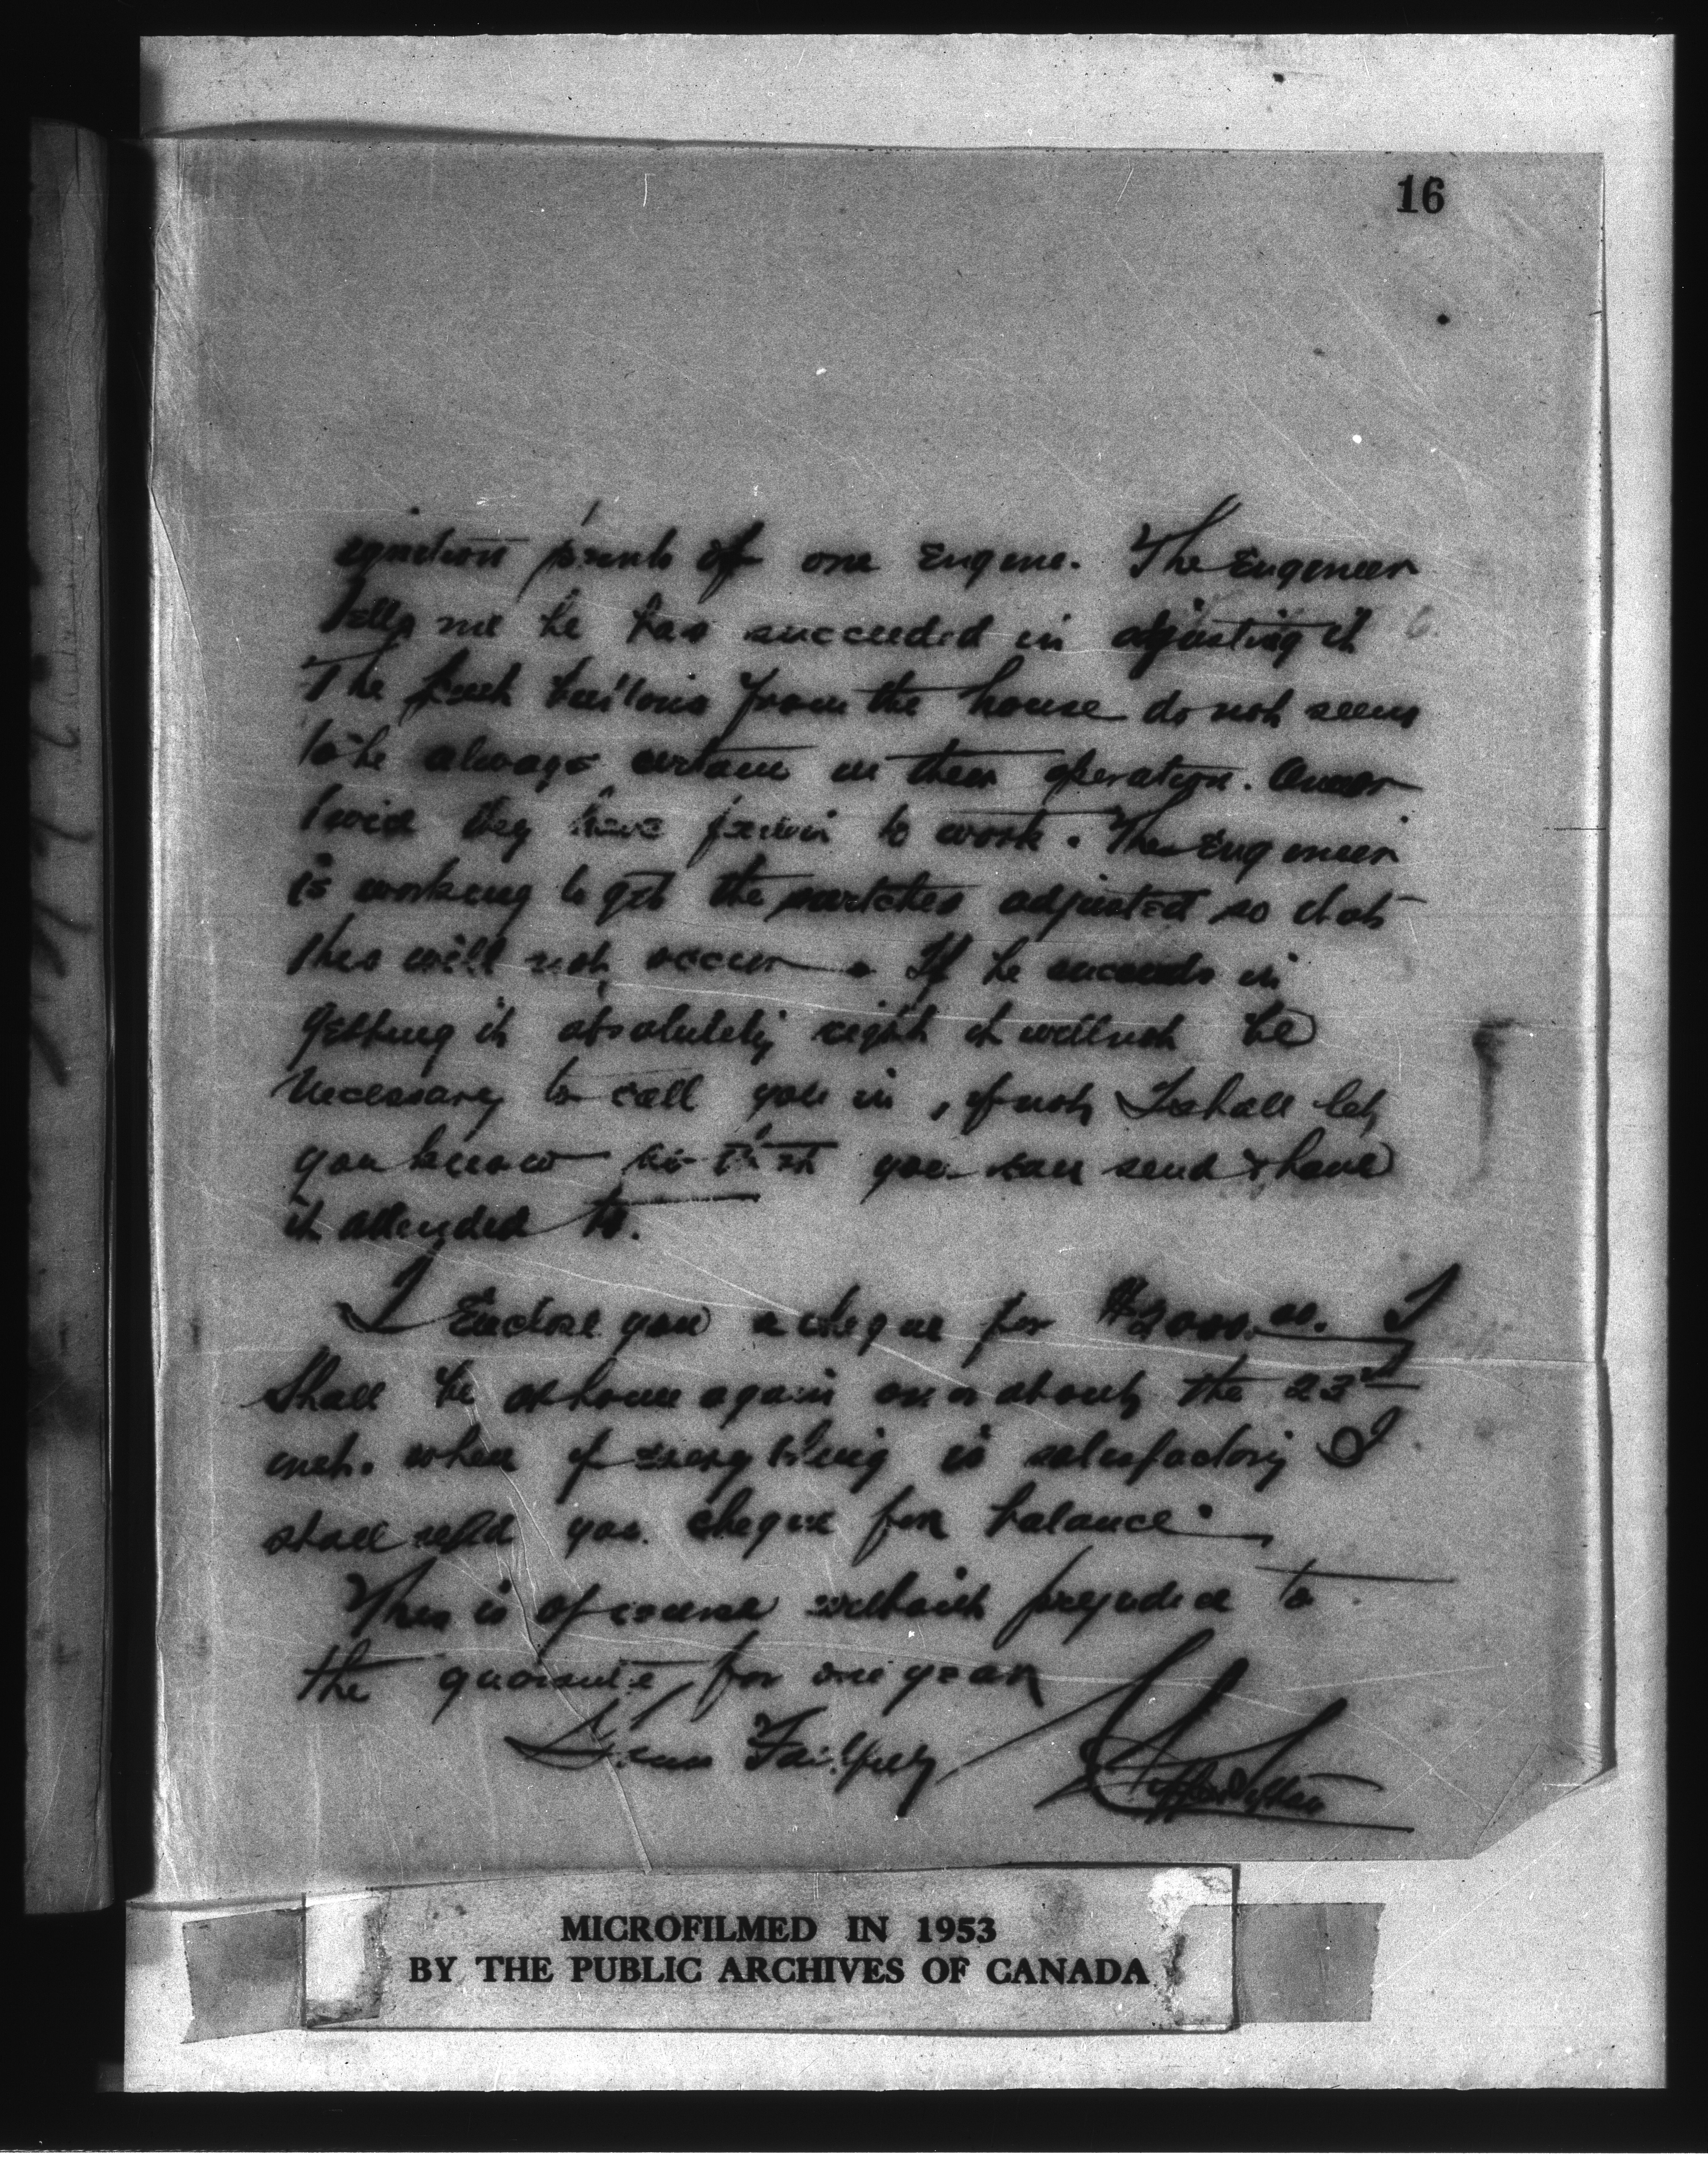 16
ignition points of one Engine. The Engineer
tells me he has succeeded in adjusting it
The push buttons from the house do not seem
to be always certain in their operation. Once or
twice they have to work. The Engineer
is working to get the switches adjusted so that
this will not occur. If he succeeds in
getting it absolutely right it will not be
necessary to call you in, if not I shall let
you know so that you can send & have
it attended to.
I Enclose you a cheque for $2000.00. I
shall be at home again on or about the 23rd
inst. when if everything is satisfactory I
shall send you cheque for balance.
This is of course without prejudice to
the for one year
Yours Faithfully
MICROFILMED IN 1953
BY THE PUBLIC ARCHIVES OF CANADA